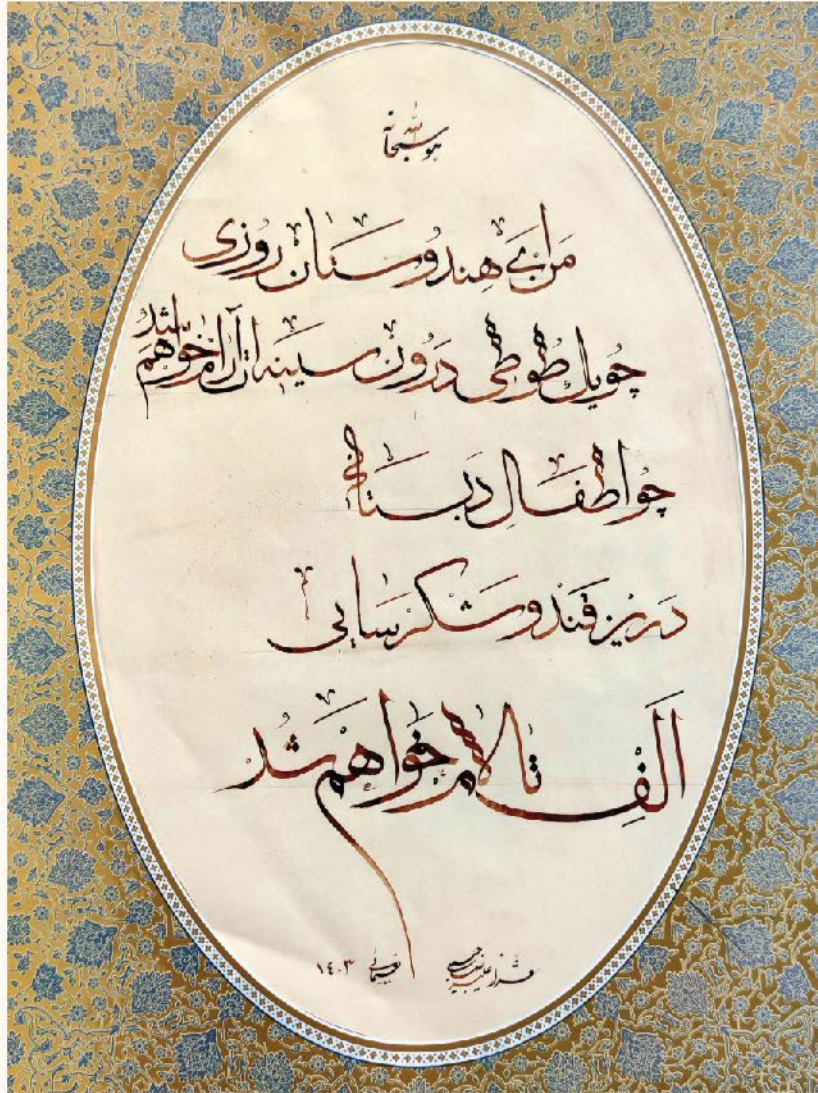 هو الله سبحانه
من ای بی هندوستان روزی
چو یک طوطی درون سینه‌ات آرام خواهم شد
چو اطفال دبستانی
درین قند و شکرسایی
الف تا لام خواهم شد
۱۴۰۳